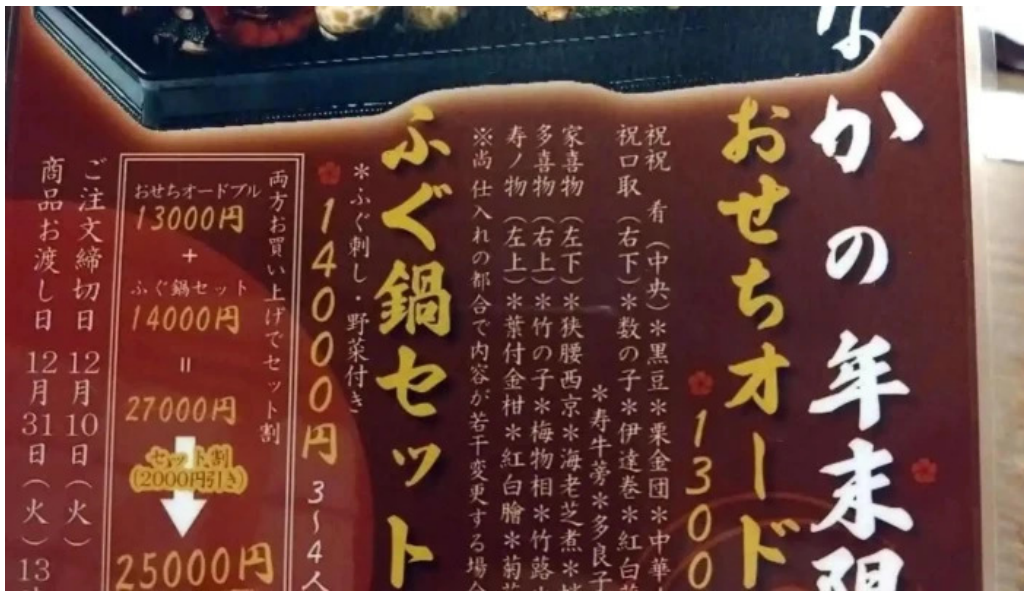 なかの年末限
おせちオード
1300
祝祝 肴(中央)*黒豆*栗金団*中華
*寿牛蒡*多良子
祝口取(右下)*数の子*伊達巻*紅白
家喜物(左下)*狭腰西京*海老芝煮*
多喜物(右上)*竹の子*梅物相*竹蕗
寿ノ物(左上)*葉付金柑*紅白膾*菊
※尚 仕入れの都合で内容が若干変更する場合
ふぐ鍋セット
*ふぐ刺し・野菜付き
14000円 3~4人
両方お買い上げでセット割
おせちオードブル
13000円
+
ふぐ鍋セット
14000円
=
27000円
セット割
(2000円引き)
25000円
ご注文締切日 12月10日(火)
商品お渡し日 12月31日(火)13